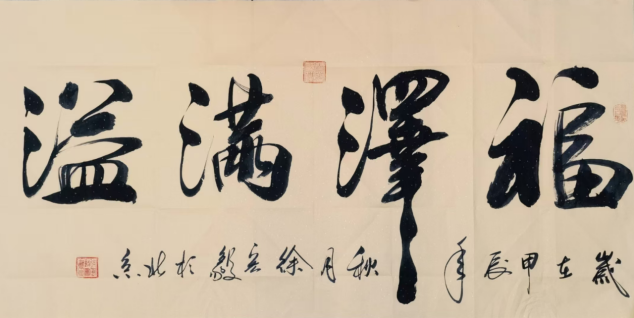 福澤满溢
歲在甲辰年秋月徐宏毅於北京